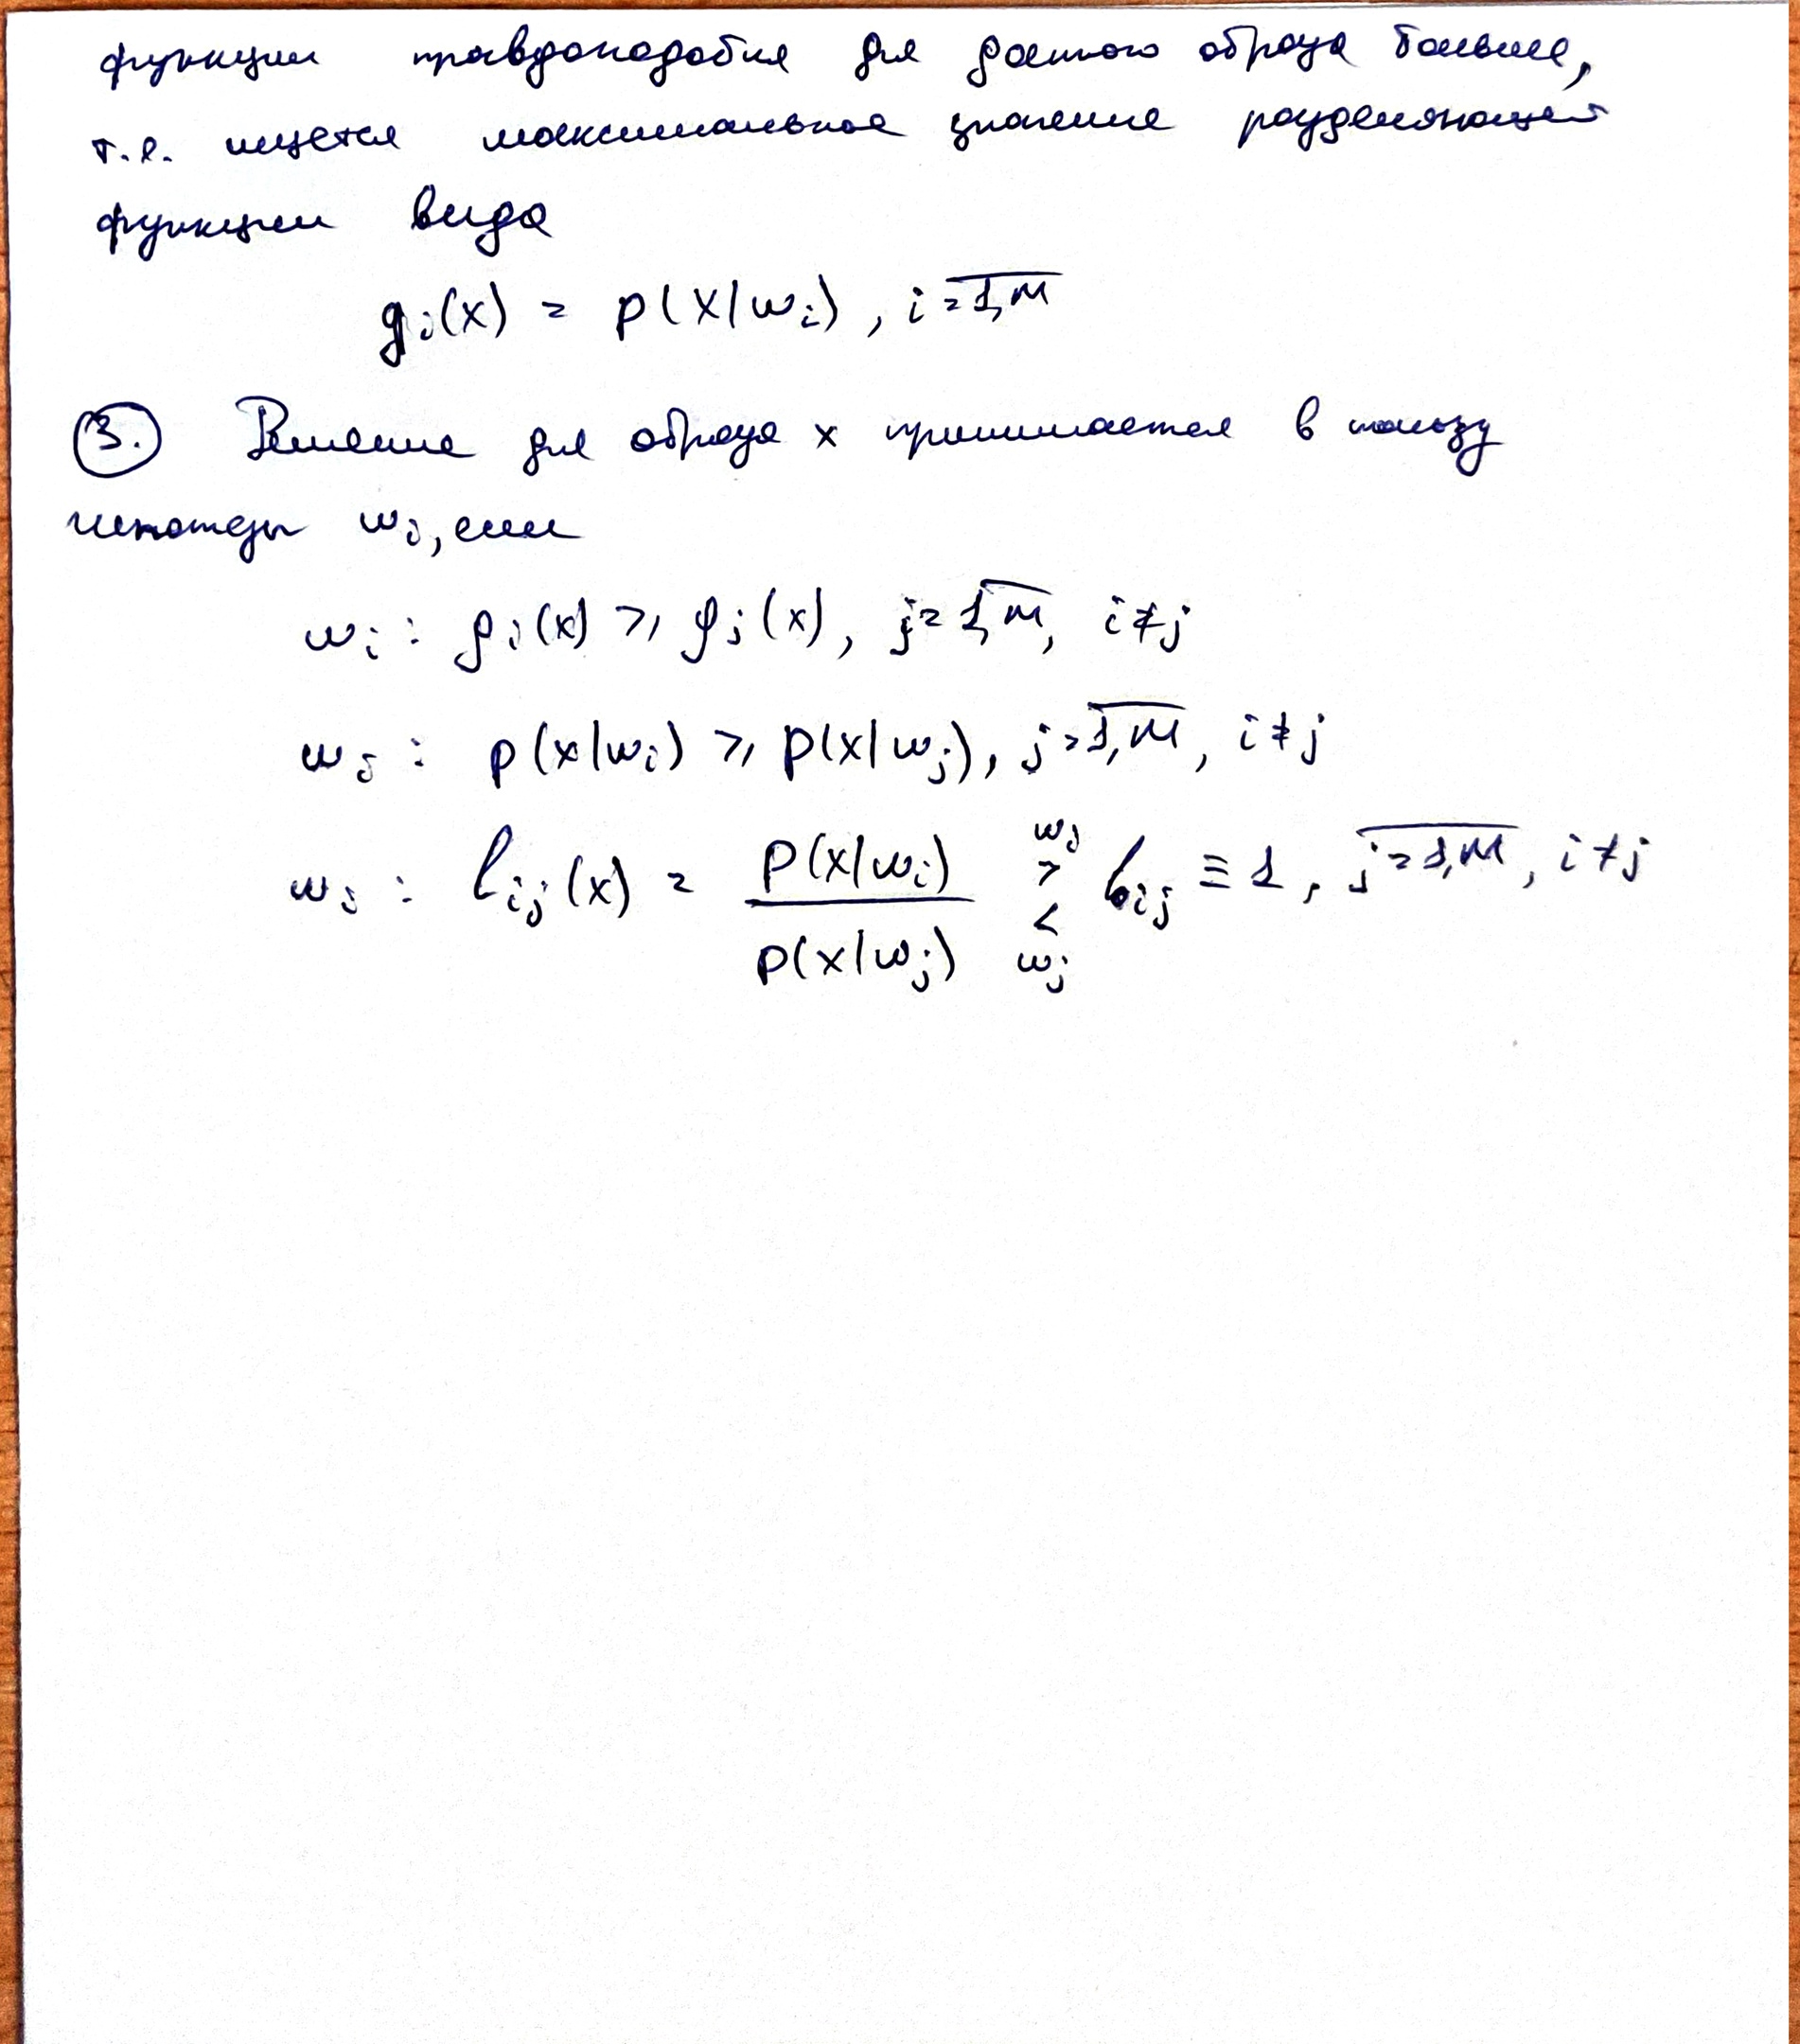 функции правдоподобия для данного образа больше,
т.е. ищется максимальное значение разделяющей
функции вида
gᵢ(x) = p(x|wᵢ), i=1,M
3. Решение для образа x принимается в пользу
гипотезы wᵢ, если
wᵢ : gᵢ(x) ⩾ gⱼ(x), j=1,M, i≠j
wᵢ : p(x|wᵢ) ⩾ p(x|wⱼ), j=1,M, i≠j
wᵢ : lᵢⱼ(x) = p(x|wᵢ) / p(x|wⱼ) wᵢ > < wⱼ lᵢⱼ ≡ 1, j=1,M, i≠j